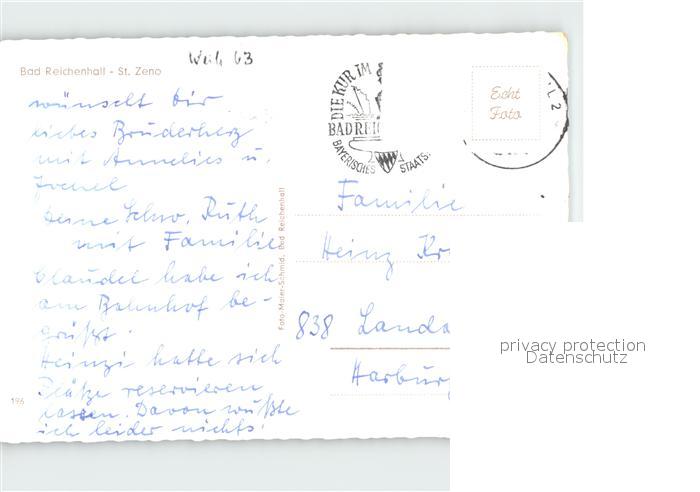 Weih 63
Bad Reichenhall - St. Zeno
wünscht dir
liebes Bruderherz
mit Annelies u.
deine Schw. Ruth
mit Familie
Claudel habe ich
am Bahnhof be-
grüßt.
Heinzi hatte sich
Plätze reservieren
lassen. Davon wußte
ich leider nichts!
196
Foto-Maier-Schmid, Bad Reichenhall
DIE KUR IM
BAD REIC
BAYERISCHES STAATS.
Echt
Foto
Familie
Heinz Kr
838 Landa
Harbur
privacy protection
Datenschutz